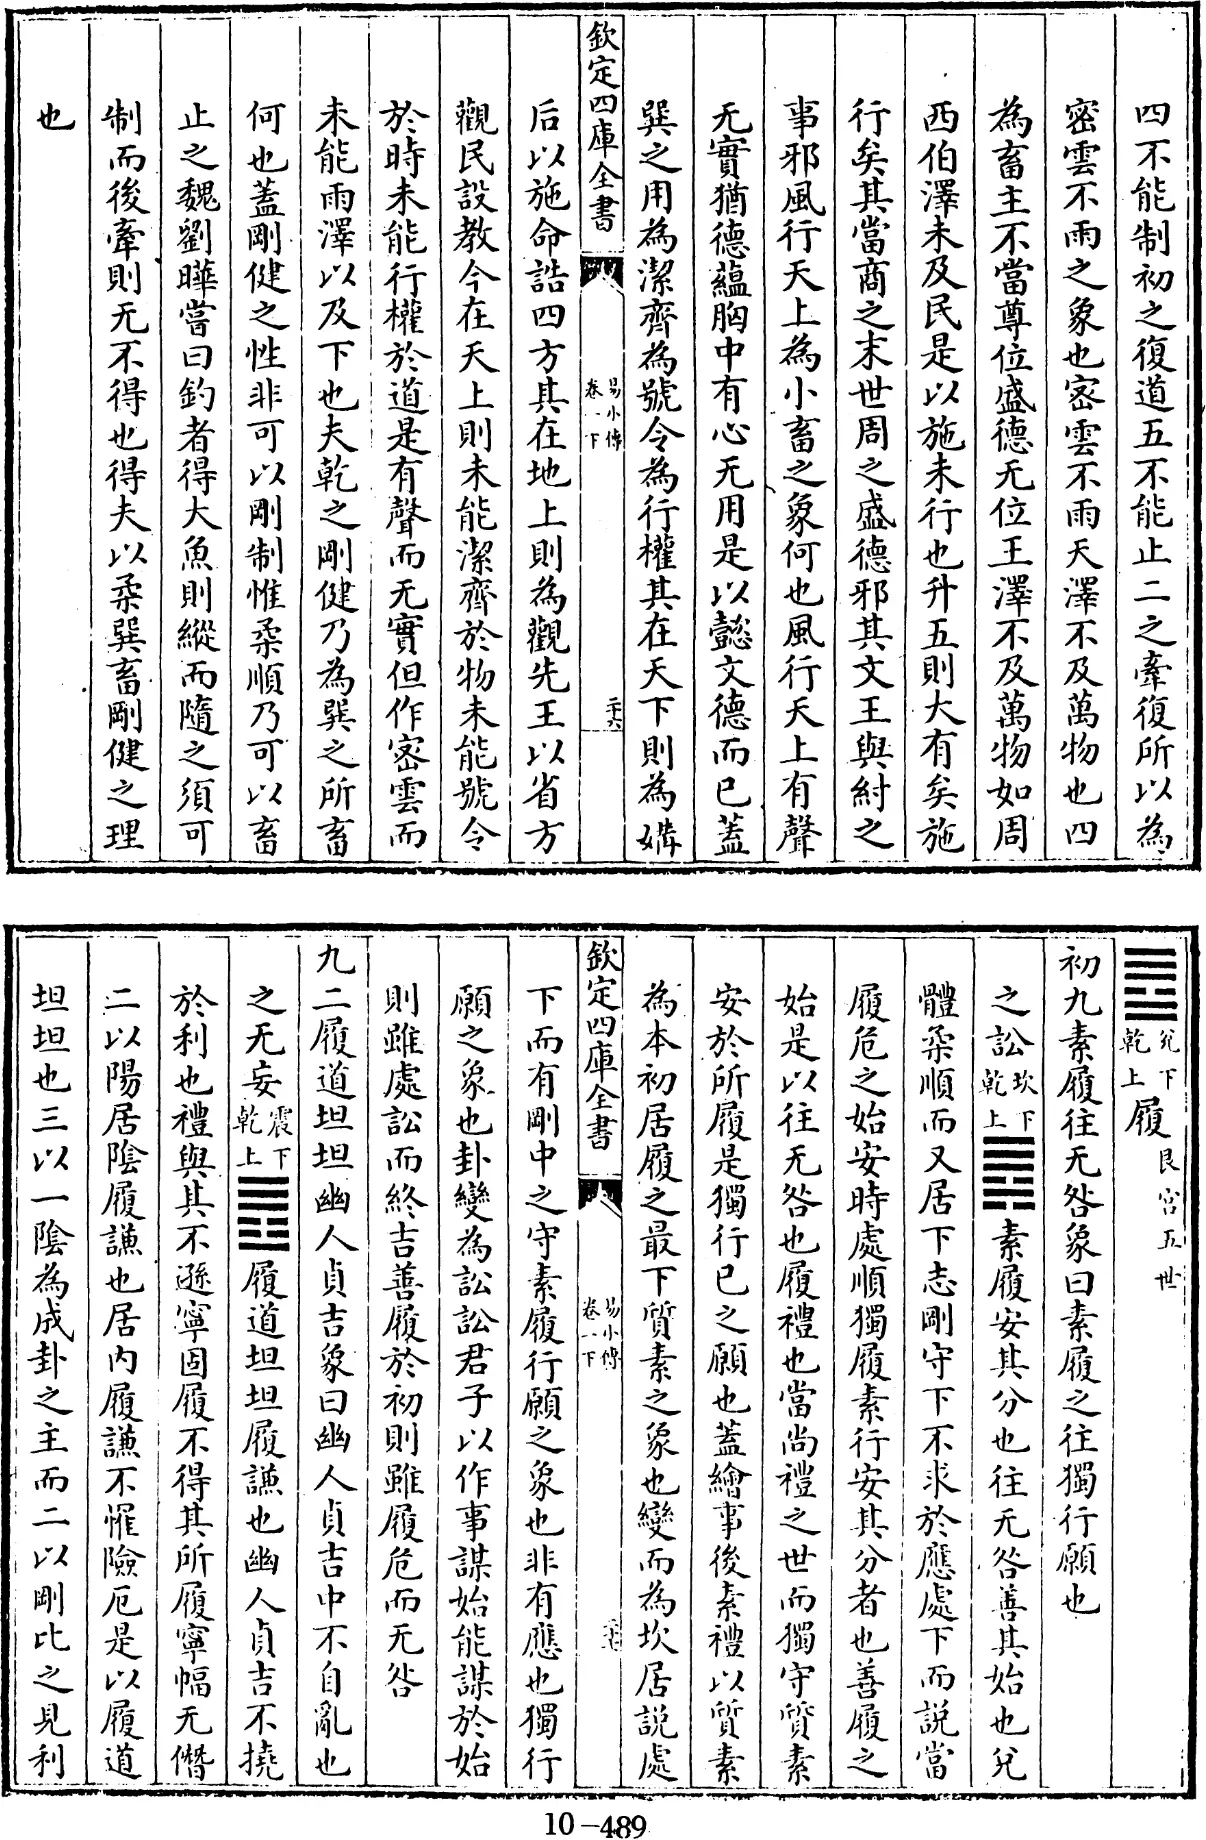 四不能制初之復道五不能止二之牽復所以為
密雲不雨之象也密雲不雨天澤不及萬物也四
為畜主不當尊位盛德无位王澤不及萬物如周
西伯澤未及民是以施未行也升五則大有矣施
行矣其當商之末世周之盛德邪其文王與紂之
事邪風行天上為小畜之象何也風行天上有聲
无實猶德蘊胸中有心无用是以懿文德而已蓋
巽之用為潔齊為號令為行權其在天下則為媾
欽定四庫全書
易小傳
卷一下
二十六
后以施命誥四方其在地上則為觀先王以省方
觀民設教今在天上則未能潔齊於物未能號令
於時未能行權於道是有聲而无實但作密雲而
未能雨澤以及下也夫乾之剛健乃為巽之所畜
何也蓋剛健之性非可以剛制惟柔順乃可以畜
止之魏劉曄嘗曰釣者得大魚則縱而隨之須可
制而後牽則无不得也得夫以柔巽畜剛健之理
也
䷉兌下乾上履艮宮五世
初九素履往无咎象曰素履之往獨行願也
之訟坎下乾上䷅素履安其分也往无咎善其始也兌
體柔順而又居下志剛守下不求於應處下而說當
履危之始安時處順獨履素行安其分者也善履之
始是以往无咎也履禮也當尚禮之世而獨守質素
安於所履是獨行已之願也蓋繪事後素禮以質素
為本初居履之最下質素之象也變而為坎居說處
欽定四庫全書
易小傳
卷一下
二十七
下而有剛中之守素履行願之象也非有應也獨行
願之象也卦變為訟訟君子以作事謀始能謀於始
則雖處訟而終吉善履於初則雖履危而无咎
九二履道坦坦幽人貞吉象曰幽人貞吉中不自亂也
之无妄震下乾上䷘履道坦坦履謙也幽人貞吉不撓
於利也禮與其不遜寧固履不得其所履寧幅无僭
二以陽居陰履謙也居內履謙不懼險厄是以履道
坦坦也三以一陰為成卦之主而二以剛比之見利
10-489